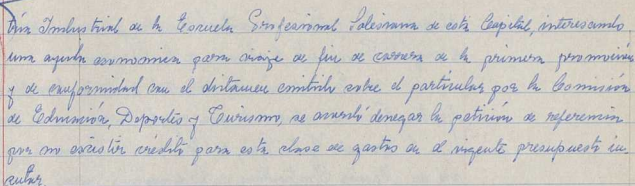 tría Industrial de la Escuela Profesional Salesiana de esta Capital, interesando
una ayuda economica para viaje de fin de carrera de la primera promoción
y de conformidad con el dictamen emitido sobre el particular por la Comisión
de Educación, Deportes y Turismo, se acordó denegar la petición de referencia
por no existir crédito para esta clase de gastos en el vigente presupuesto